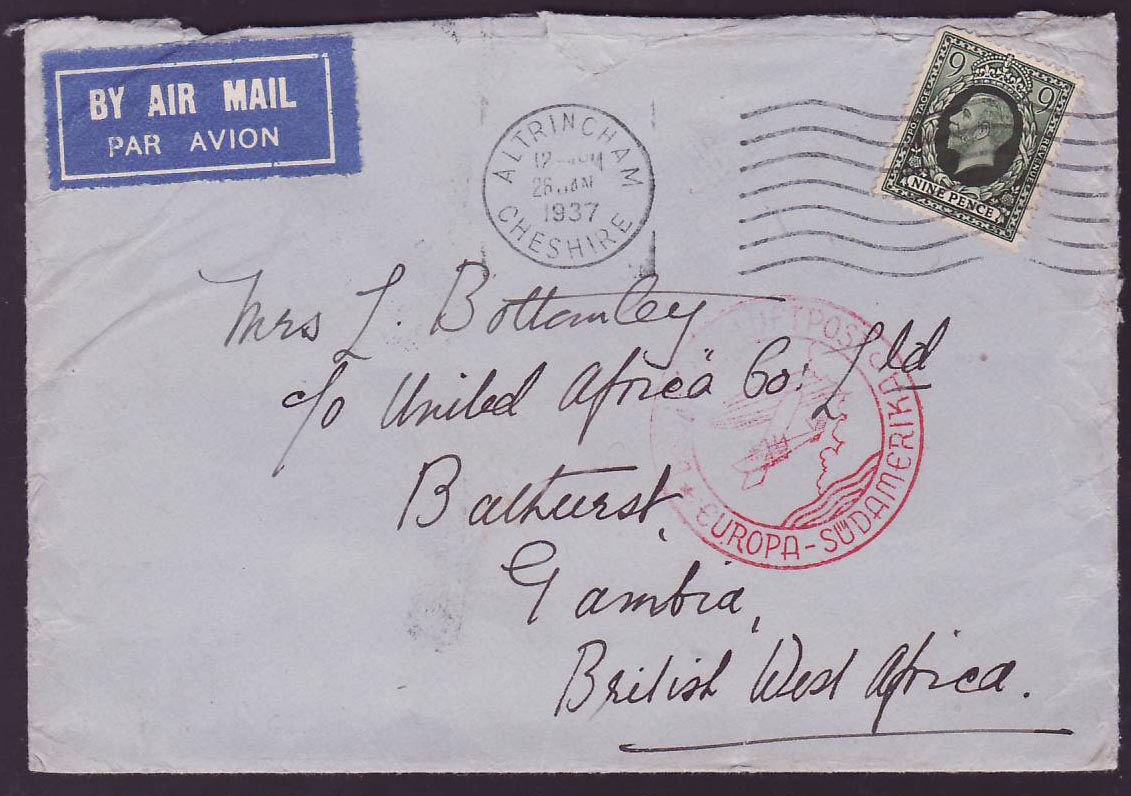 BY AIR MAIL
PAR AVION
ALTRINCHAM
26 JAN
1937
CHESHIRE
9 9
POSTAGE REVENUE
NINE PENCE
Mrs L. Bottomley
c/o United Africa Co: Ltd
Bathurst,
Gambia,
British West Africa.
LUFTPOST
EUROPA-SÜDAMERIKA